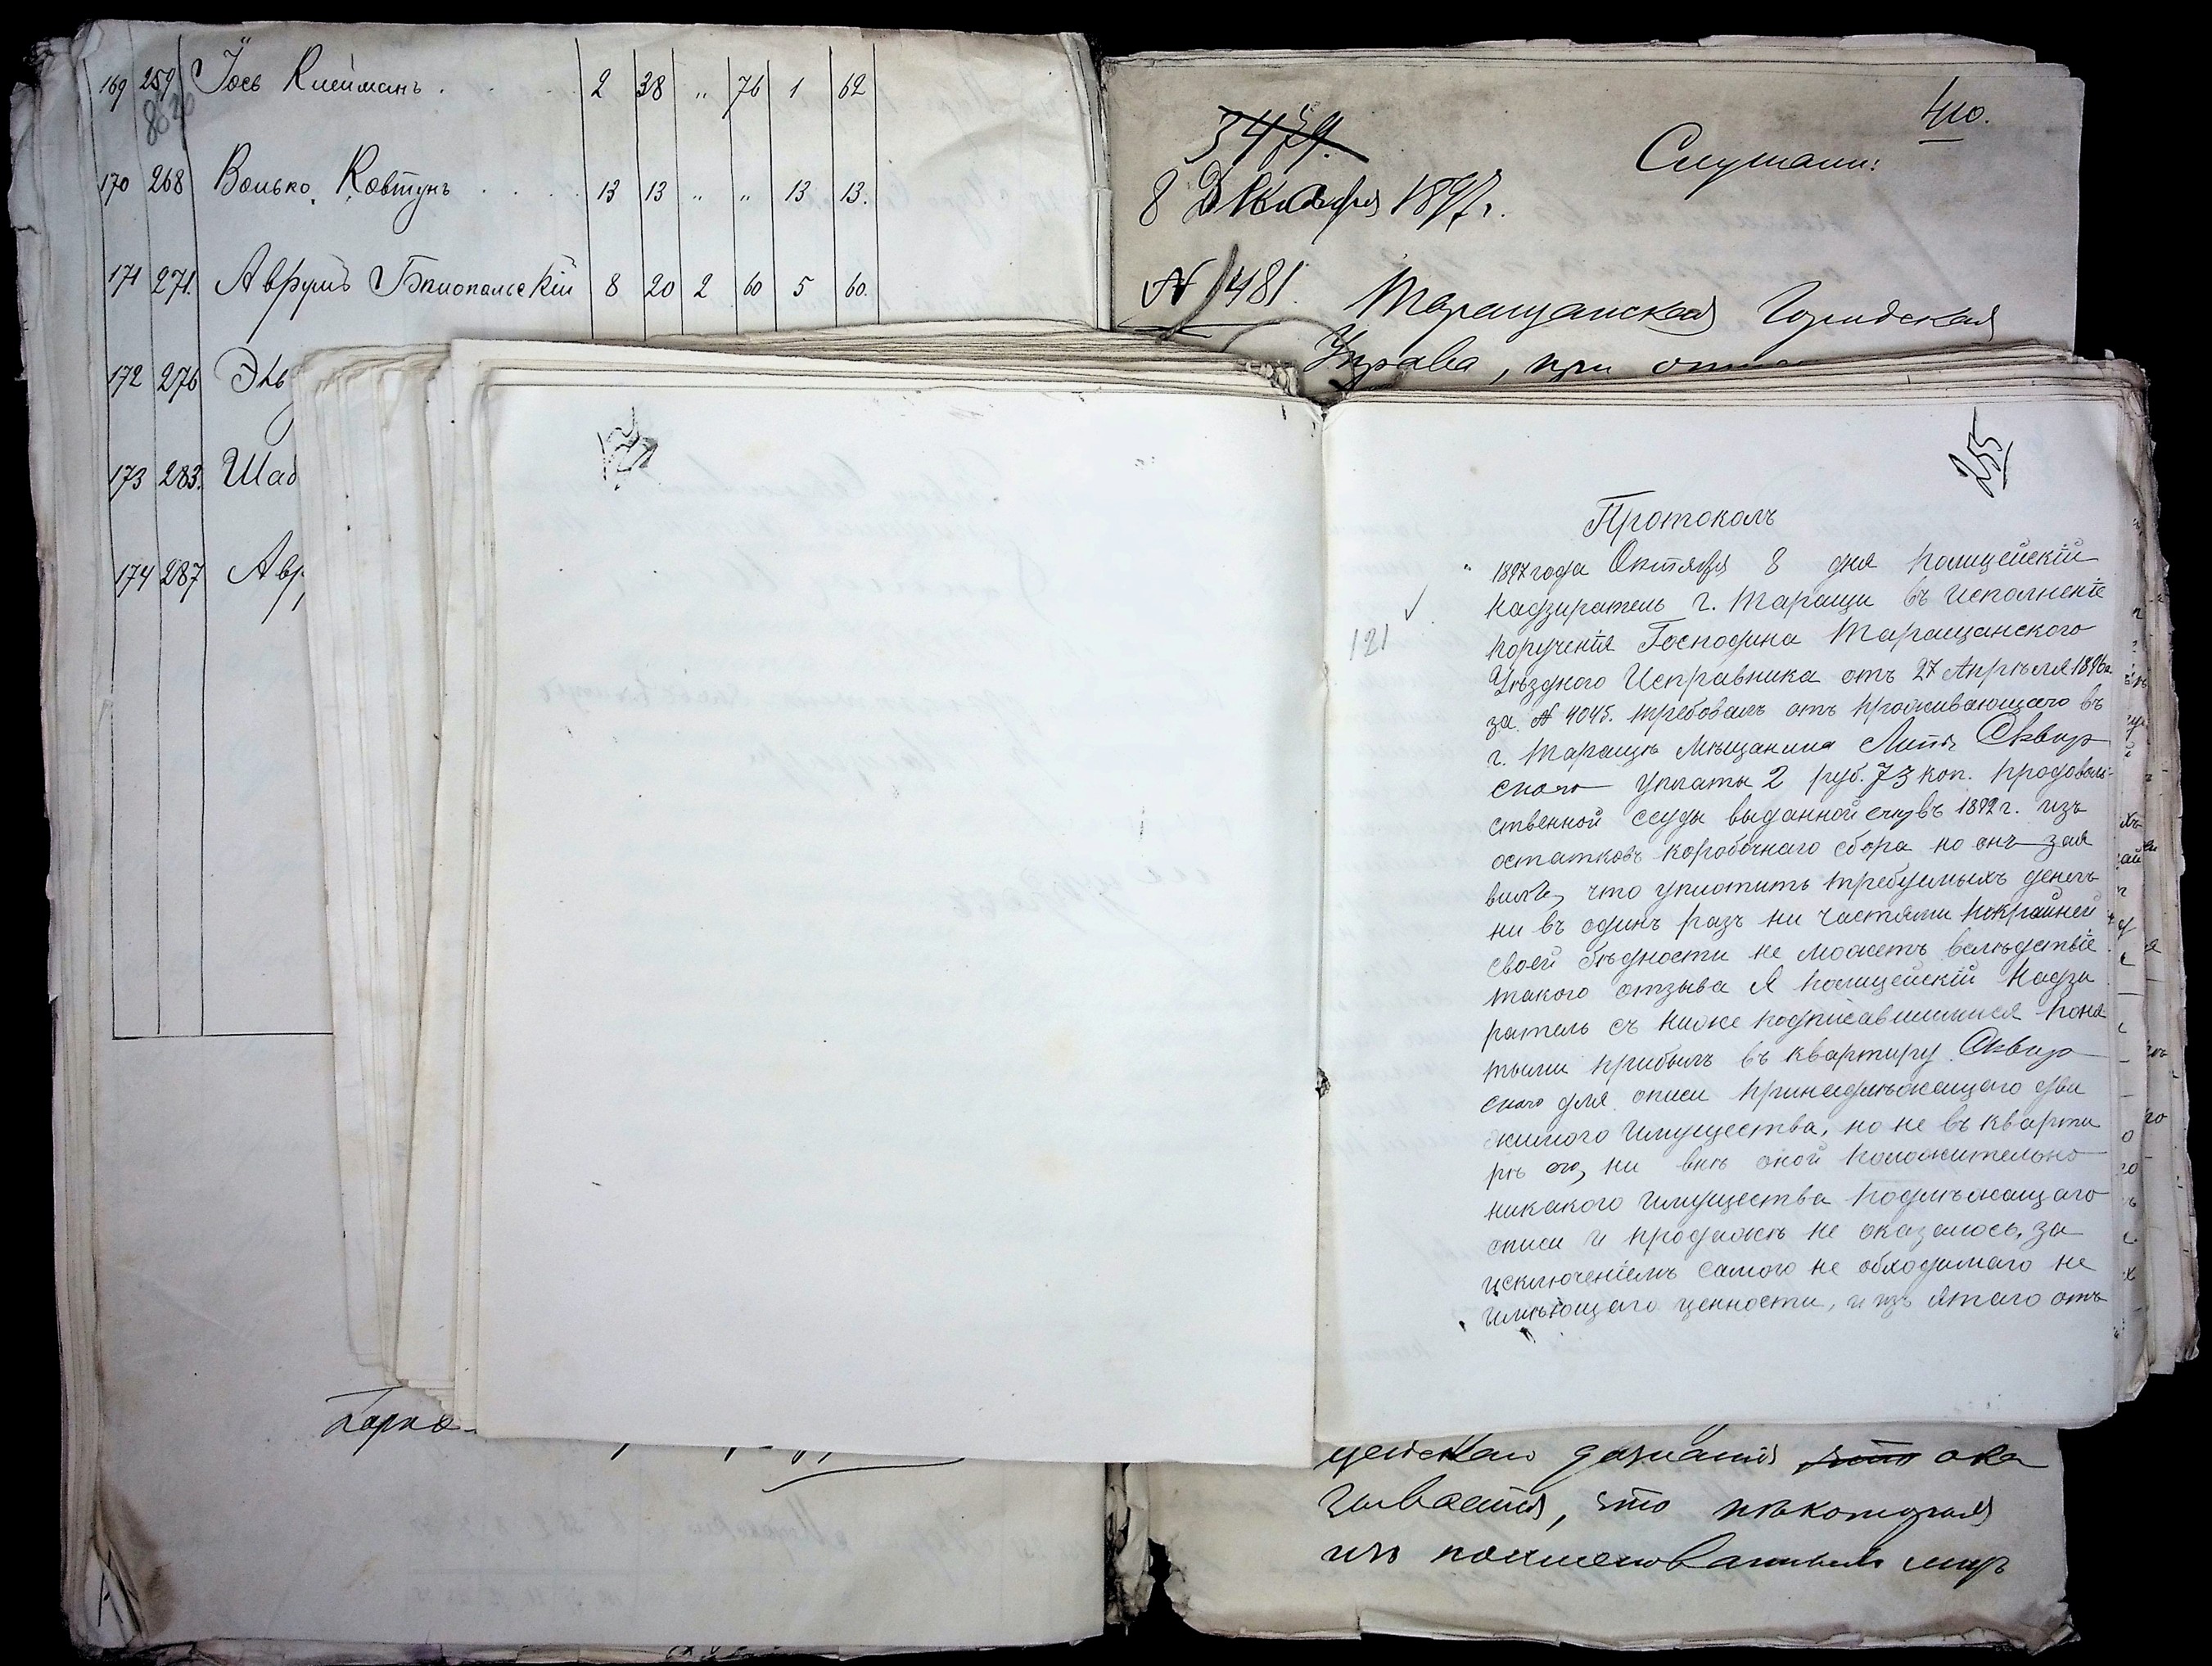 169 259 Іось Клейманъ . 2 38 " 76 1 62
8020
170 268 Волько Ковтунъ . . . . 13 13 " " 13 13.
171 271. Аврумъ Бялопольскій 8 20 2 60 5 60.
172 276 Эль
173 283. Шад
174 287 Авр
8 Декабря 1897 г.
№ 1481.
410.
Слушали:
Таращанская Городская
Управа, при отно
255
Протоколъ
1897 года Октября 8 дня Полицейскій
Надзиратель г. Таращи въ исполненіе
порученія Господина Таращанскаго
Уѣзднаго Исправника отъ 27 Апрѣля 1896 г.
за № 4045. требовалъ отъ проживающаго въ
г. Таращѣ мѣщанина Липы Сквир
скаго уплаты 2 руб. 73 коп. продоволь-
ственной ссуды выданной ему въ 1892 г. изъ
остатковъ коробочнаго сбора но онъ зая
вилъ, что уплотить требуемыхъ денегъ
ни въ одинъ разъ ни частями покрайней
своей бѣдности не можетъ вслѣдствіе
такого отзыва Я Полицейскій Надзи
ратель съ ниже подписавшимися поня
тыми прибылъ въ квартиру Сквир
скаго для описи принадлѣжащаго дви
жимого имущества, но не въ кварти
рѣ его, ни внѣ оной положительно
никакого имущества подлѣжащаго
описи и продажѣ не оказалось, за
исключеніемъ самого не обходимаго не
имѣющаго ценности, и изъ ятаго отъ
121
цейскаго дознанія ока
зывается, что нѣкоторыя
изъ поименованныхъ лицъ